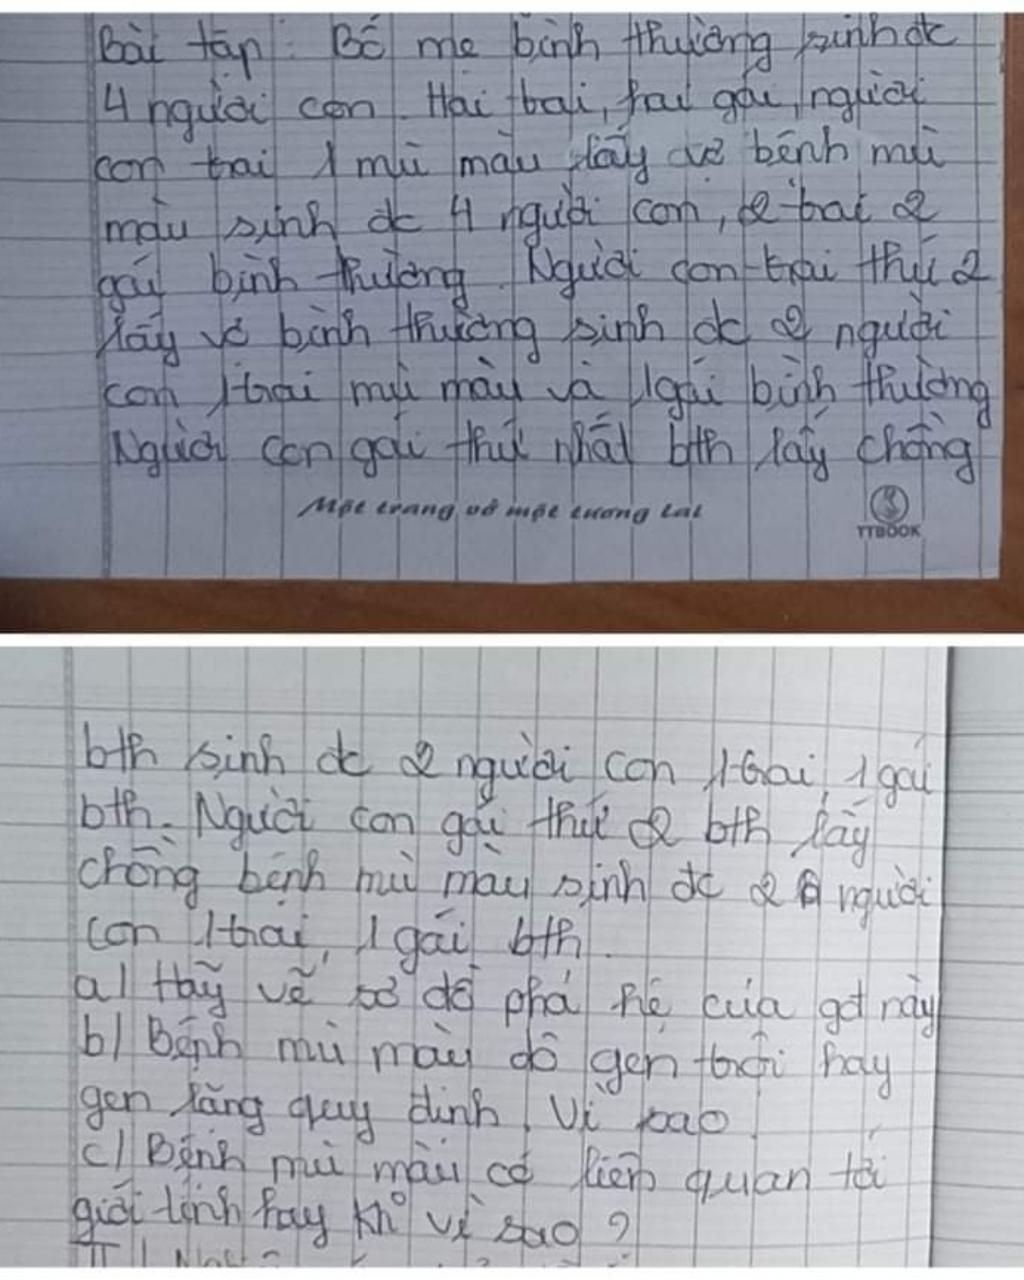 Bài tập: Bố mẹ bình thường sinh đc
4 người con. Hai trai, hai gái, người
con trai 1 mù màu lấy vợ bệnh mù
màu sinh đc 4 người con, 2 trai 2
gái bình thường. Người con trai thứ 2
lấy vợ bình thường sinh đc 2 người
con 1 trai mù màu và 1 gái bình thường
Người con gái thứ nhất bth lấy chồng
Một trang vở một tương lai
TTBOOK
bth sinh đc 2 người con 1 trai, 1 gái
bth. Người con gái thứ 2 bth lấy
chồng bệnh mù màu sinh đc 2 người
con 1 trai, 1 gái bth.
a/ Hãy vẽ sơ đồ phả hệ của gđ này
b/ Bệnh mù màu do gen trội hay
gen lặng quy định. Vì sao
c/ Bệnh mù màu có liên quan tới
giới tính hay kh° vì sao?